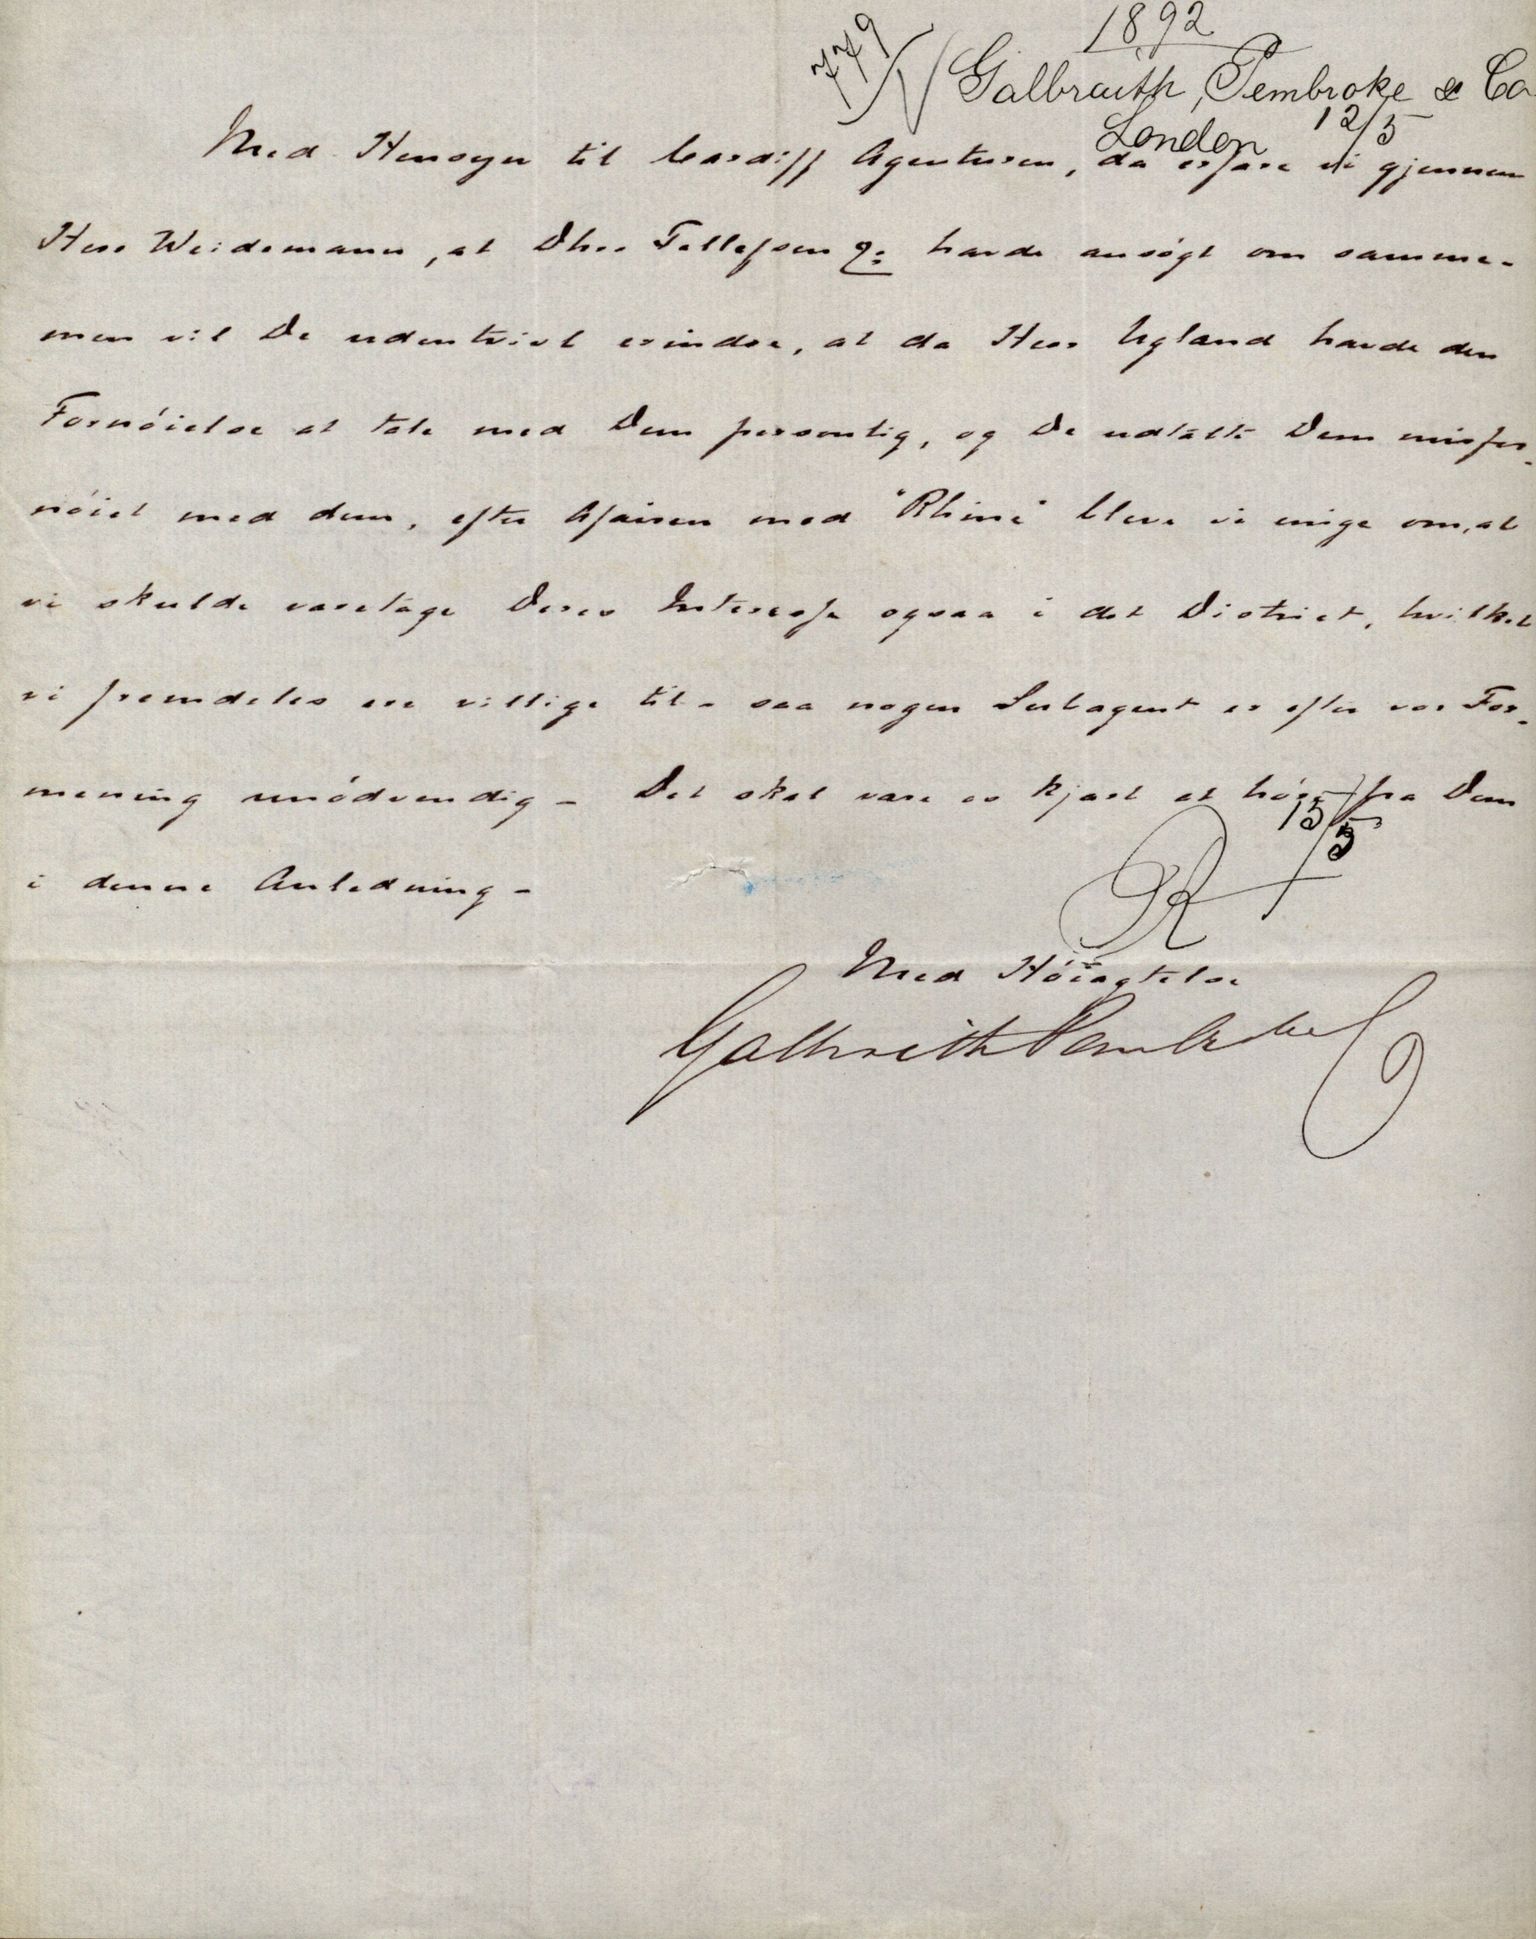 1892
779
Galbraith, Pembroke & Co
London 12/5
Med Hensyn til Cardiff Agenturen, da erfare vi gjennem
Herr Weidemann, at Dhrr Tellefsen havde ansögt om samme-
men vil De udentvivl erindre, at da Herr Ugland havde den
Fornöielse at tale med Dem personlig, og De udtalte Dem misfor-
nöiet med dem, efter Afairen med "Rhine" bleve vi enige om, at
vi skulde varetage Deres Interesse ogsaa i det District, hvilket
vi fremdeles ere villige til - saa nogen Subagent er efter vor For-
mening unödvendig - Det skal være os kjært at höre fra Dem
i denne Anledning -
R 15/5
Med Höiagtelse
Galbraith Pembroke Co